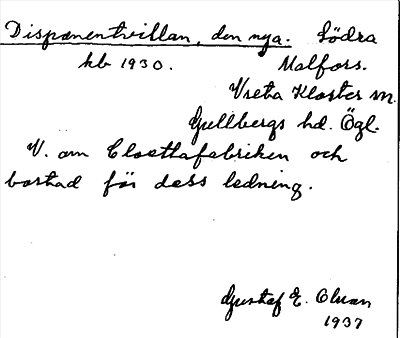 Dispanentvillan, den nya. Södra
kb 1930. Malfors.
Vreta Kloster sn.
Gullbergs hd. Ögl.
V. om Cloettafabriken och
bostad för dess ledning.
Gustaf E.
1937